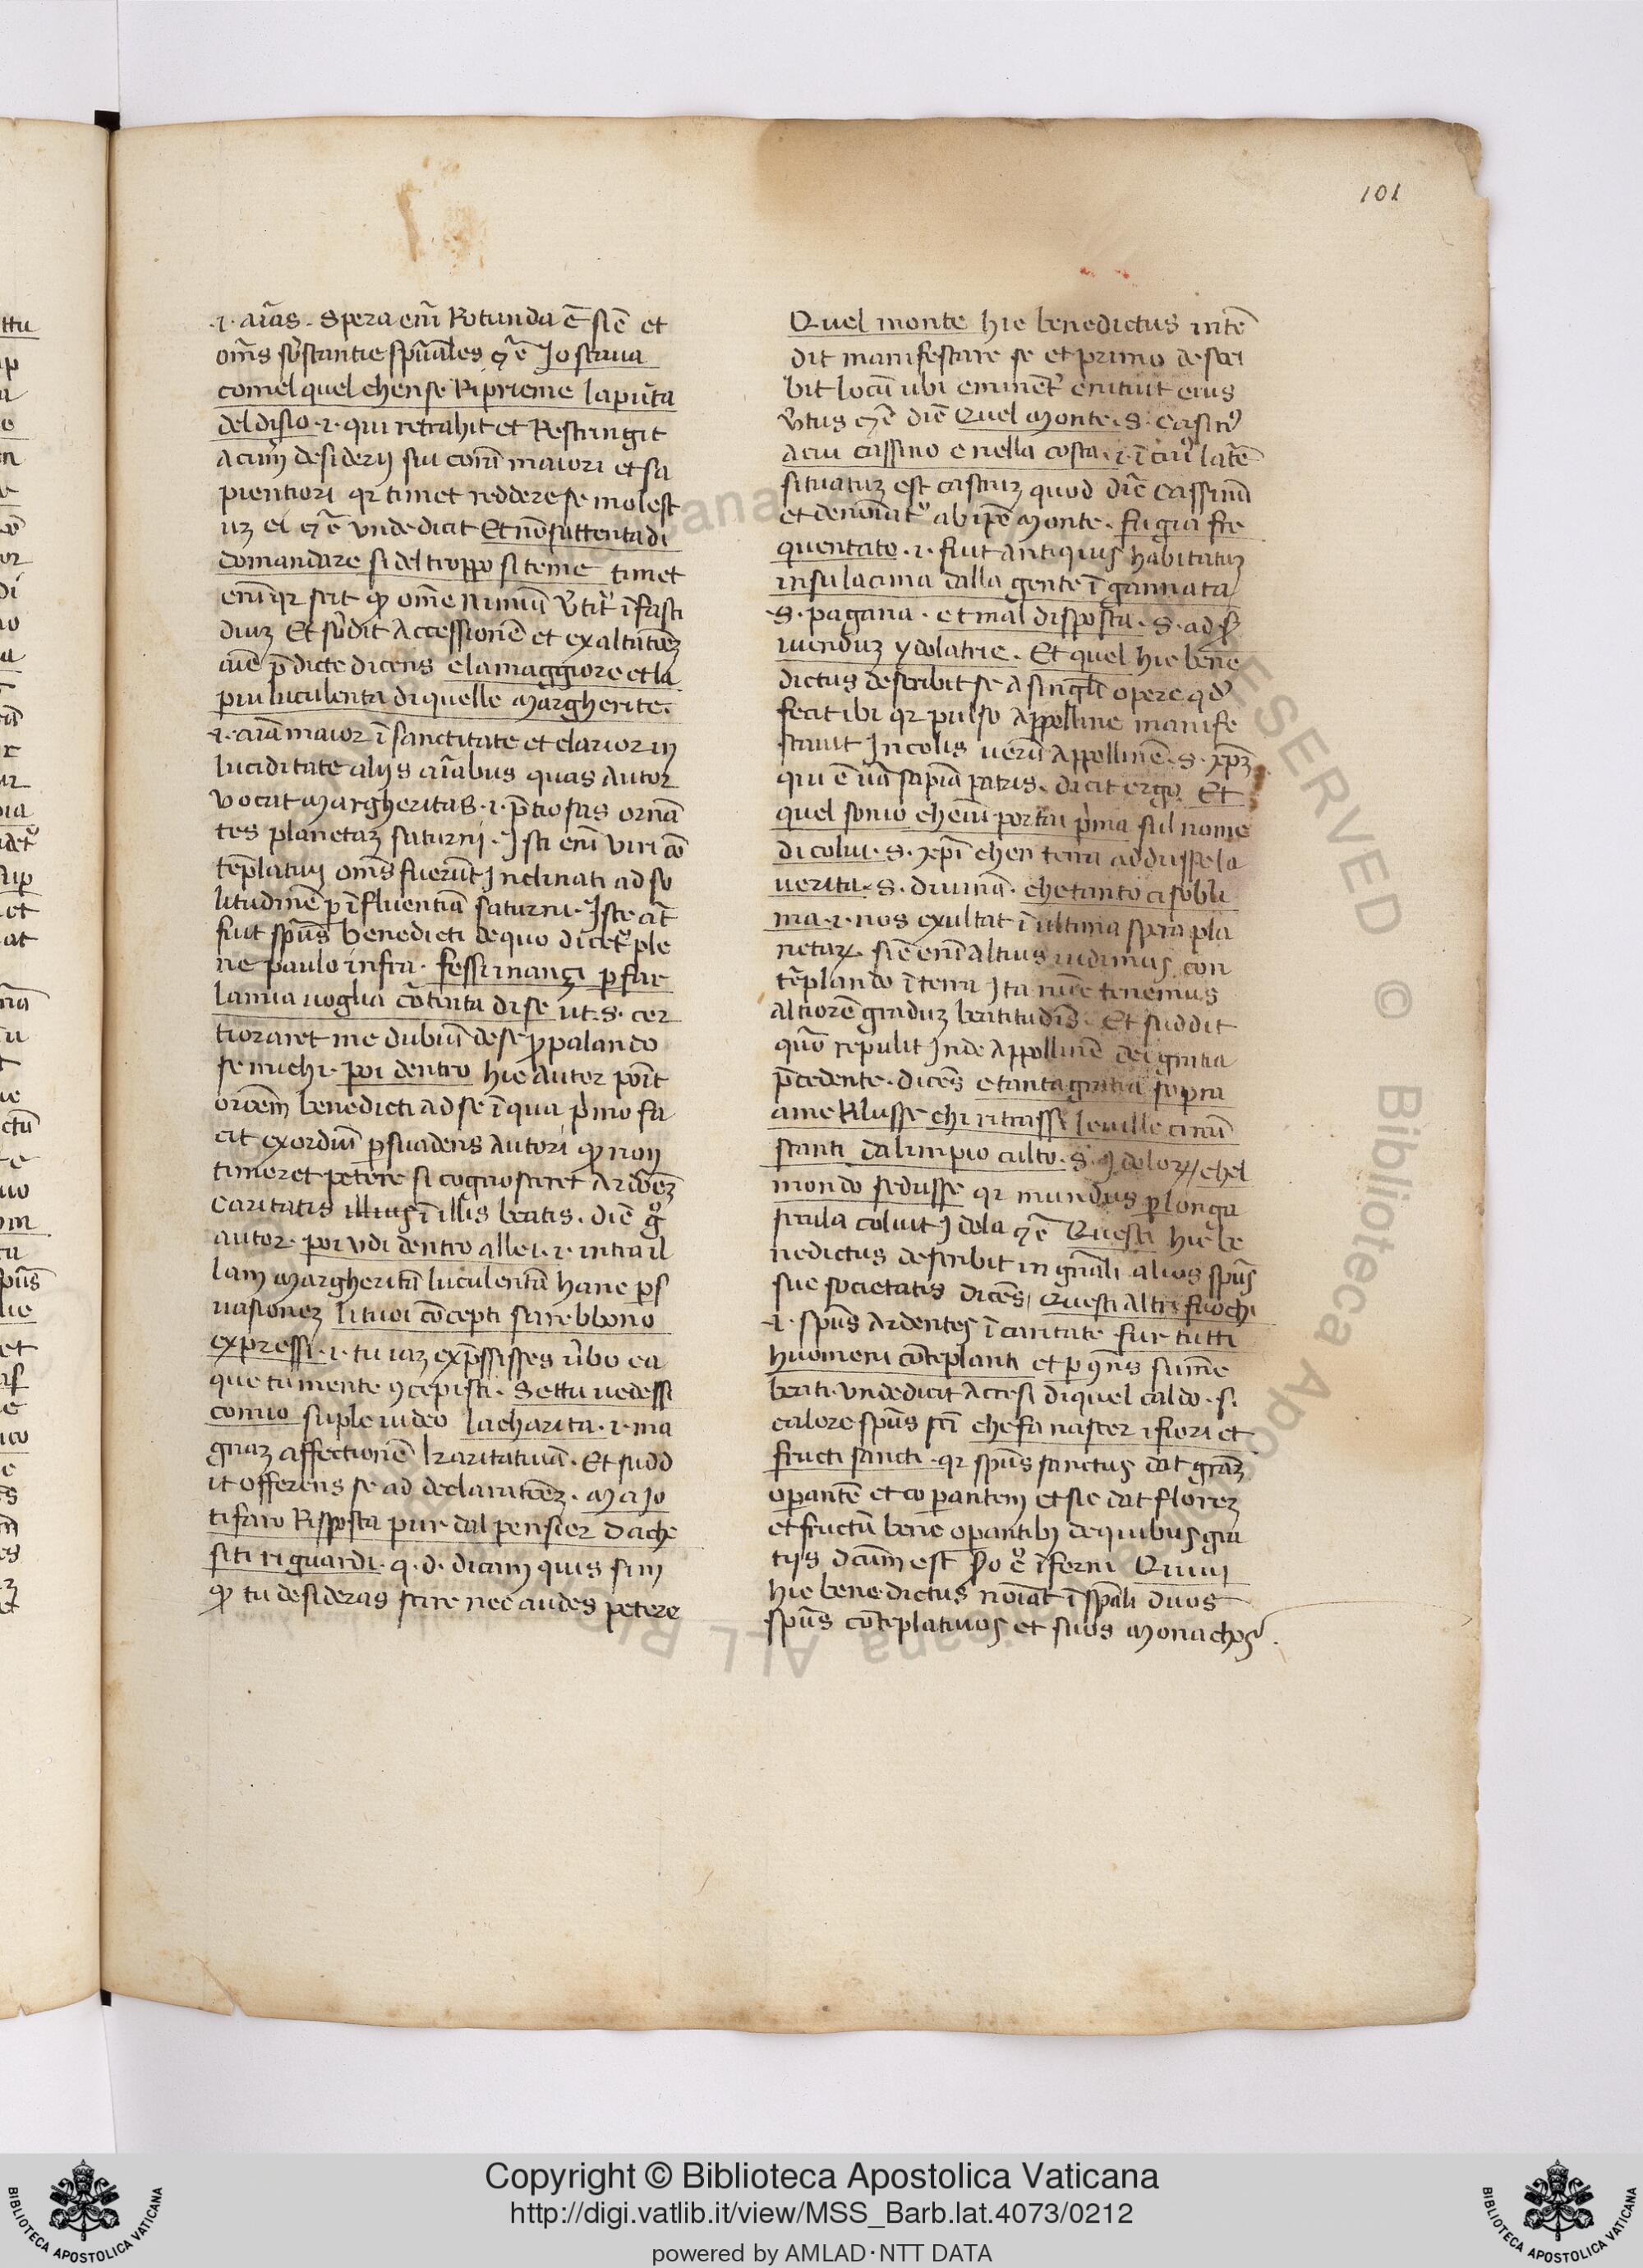 101
.i. aīas. Spera enī Rotunda ē sic̄ et
om̄s s̄bstantie spūales ꝛc̄ Io staua
comel quel chense Riprieme lapūta
deldisio .i. qui retrahit et Restringit
acum̄ desiderij sui corā maiori et sa
pientiori qr timet reddere se molest
uz ei ꝛc̄ vnde dicit Et nōsattenta di
domandare si del troppo si teme timet
enīqr scit ꝙ ome nimiū v̄titʳ ī fasti
diuz Et s̄bdit accessionē et exaltatōez
aīe p̄dicte dicens elamaggiore et la
piu luculenta di quelle Margherite.
.i. aīa maior ī sanctitate et clarior in
luciditate alijs aīabus quas autor
vocat Margheritas .i. p̄tiosas ornā
tes planetaz saturni. Isti enī viri cō
tēplatiui om̄s fuerūt Inclinati ad so
litudinē p īfluentiā saturni. Iste aūt
fuit spūs benedicti de quo dicetʳ ple
ne paulo infra. fessi inançi p far
lamia uoglia cōtenta di se ut .s. cer
tioraret me dubiū de se ꝓpalando
se michi. poi dentro hic autor poīt
orōem̄ benedicti ad se ī qua p̄mo fa
cit exordiū psuadens autori ꝙ non
timeret petere si cognosceret ardorez̄
caritatis illius ī illis beatis. dic̄ gͦ
autor. poi vdi dentro allei .i. intra il
lam Margheritā luculentā hanc ps
uasionez li tuoi cōcepti sarebbono
expressi .i. tu iaz exp̄ssisses ūbo ea
que tu mente ꝯcepisti. Settu uedessi
comio suple uideo lacharita .i. ma
gnaz affectionē k̄aritatiuā. Et sudd
it offerens se ad declaratōez. Ma Io
ti faro Risposta pur dal pensier dache
siti riguardi. q.d. dicam quis sim
ꝙ tu desideras scire nec audes petere
Quel monte hic benedictus intē
dit manifestare se et primo descri
bit locū ubi eminētʳ enituit eius
v̄tus ꝛc̄ dic̄ Quel Monte .s. Casinꝰ
acui cassino e nella costa .i. ī cuiꝰ latē
situatuz est castruz quod dic̄ cassinū
et denoīatʳ ab ip̄o Monte. fu gia fre
quentato .i. fuit antiquis habitatuz
insulacima dalla gente īgannata
.s. pagana. et mal disposta .s. ad s̄
uienduz ydolatrie. Et quel hic bene
dictus describit se a singl̄i opere qd̄
fecit ibi qr pulso Appolline manife
stauit Incolis uerū Appollinē .s. xp̄z
qui ē ūa sapīa patris. dicit ergo Et
quel sonio cheuiu portai p̄ma sul nome
di colui .s. xp̄i chen terra addusse la
uerita .s. diuinā. che tanto ci sobli
ma .i. nos exultat ī ultima spera pla
netaꝝ. sic̄ enī altius uidimus con
tēplando ī terra Ita nūc tenemus
altiorē graduz beatitudīs. Et suddit
quō repulit Inde Appollinē dei gratia
p̄cedente. dicēs e tanta gratia sopra
ame Rilusse chi ritrasse leuille circū
stanti dalimpio culto .s. Ydoloꝝ/ chel
mondo sedusse qr mundus p longa
secula coluit Idola ꝛc̄ Questi hic be
nedictus describit in gn̄ali alios spūs
sue societatis dicēs/ Questi altri fuochi
.i. spūs ardentes ī caritate fur tutti
huomeni cōteplanti et p ꝯn̄s sum̄e
beati. vnde dicit Accesi di quel caldo .s.
calore spūs sc̄i che fa nascer i fiori et
fructi sancti. qr spūs sanctus dat grāz
opantē et coopantem et sic dat florez
et fructū bene opantibꝫ de quibus gra
tijs dc̄um est 2o cͦ īferni Quiui
hic benedictus noīat ī spāli duos
spūs cōteplatiuos et suos Monachos.
Copyright © Biblioteca Apostolica Vaticana
http://digi.vatlib.it/view/MSS_Barb.lat.4073/0212
powered by AMLAD·NTT DATA